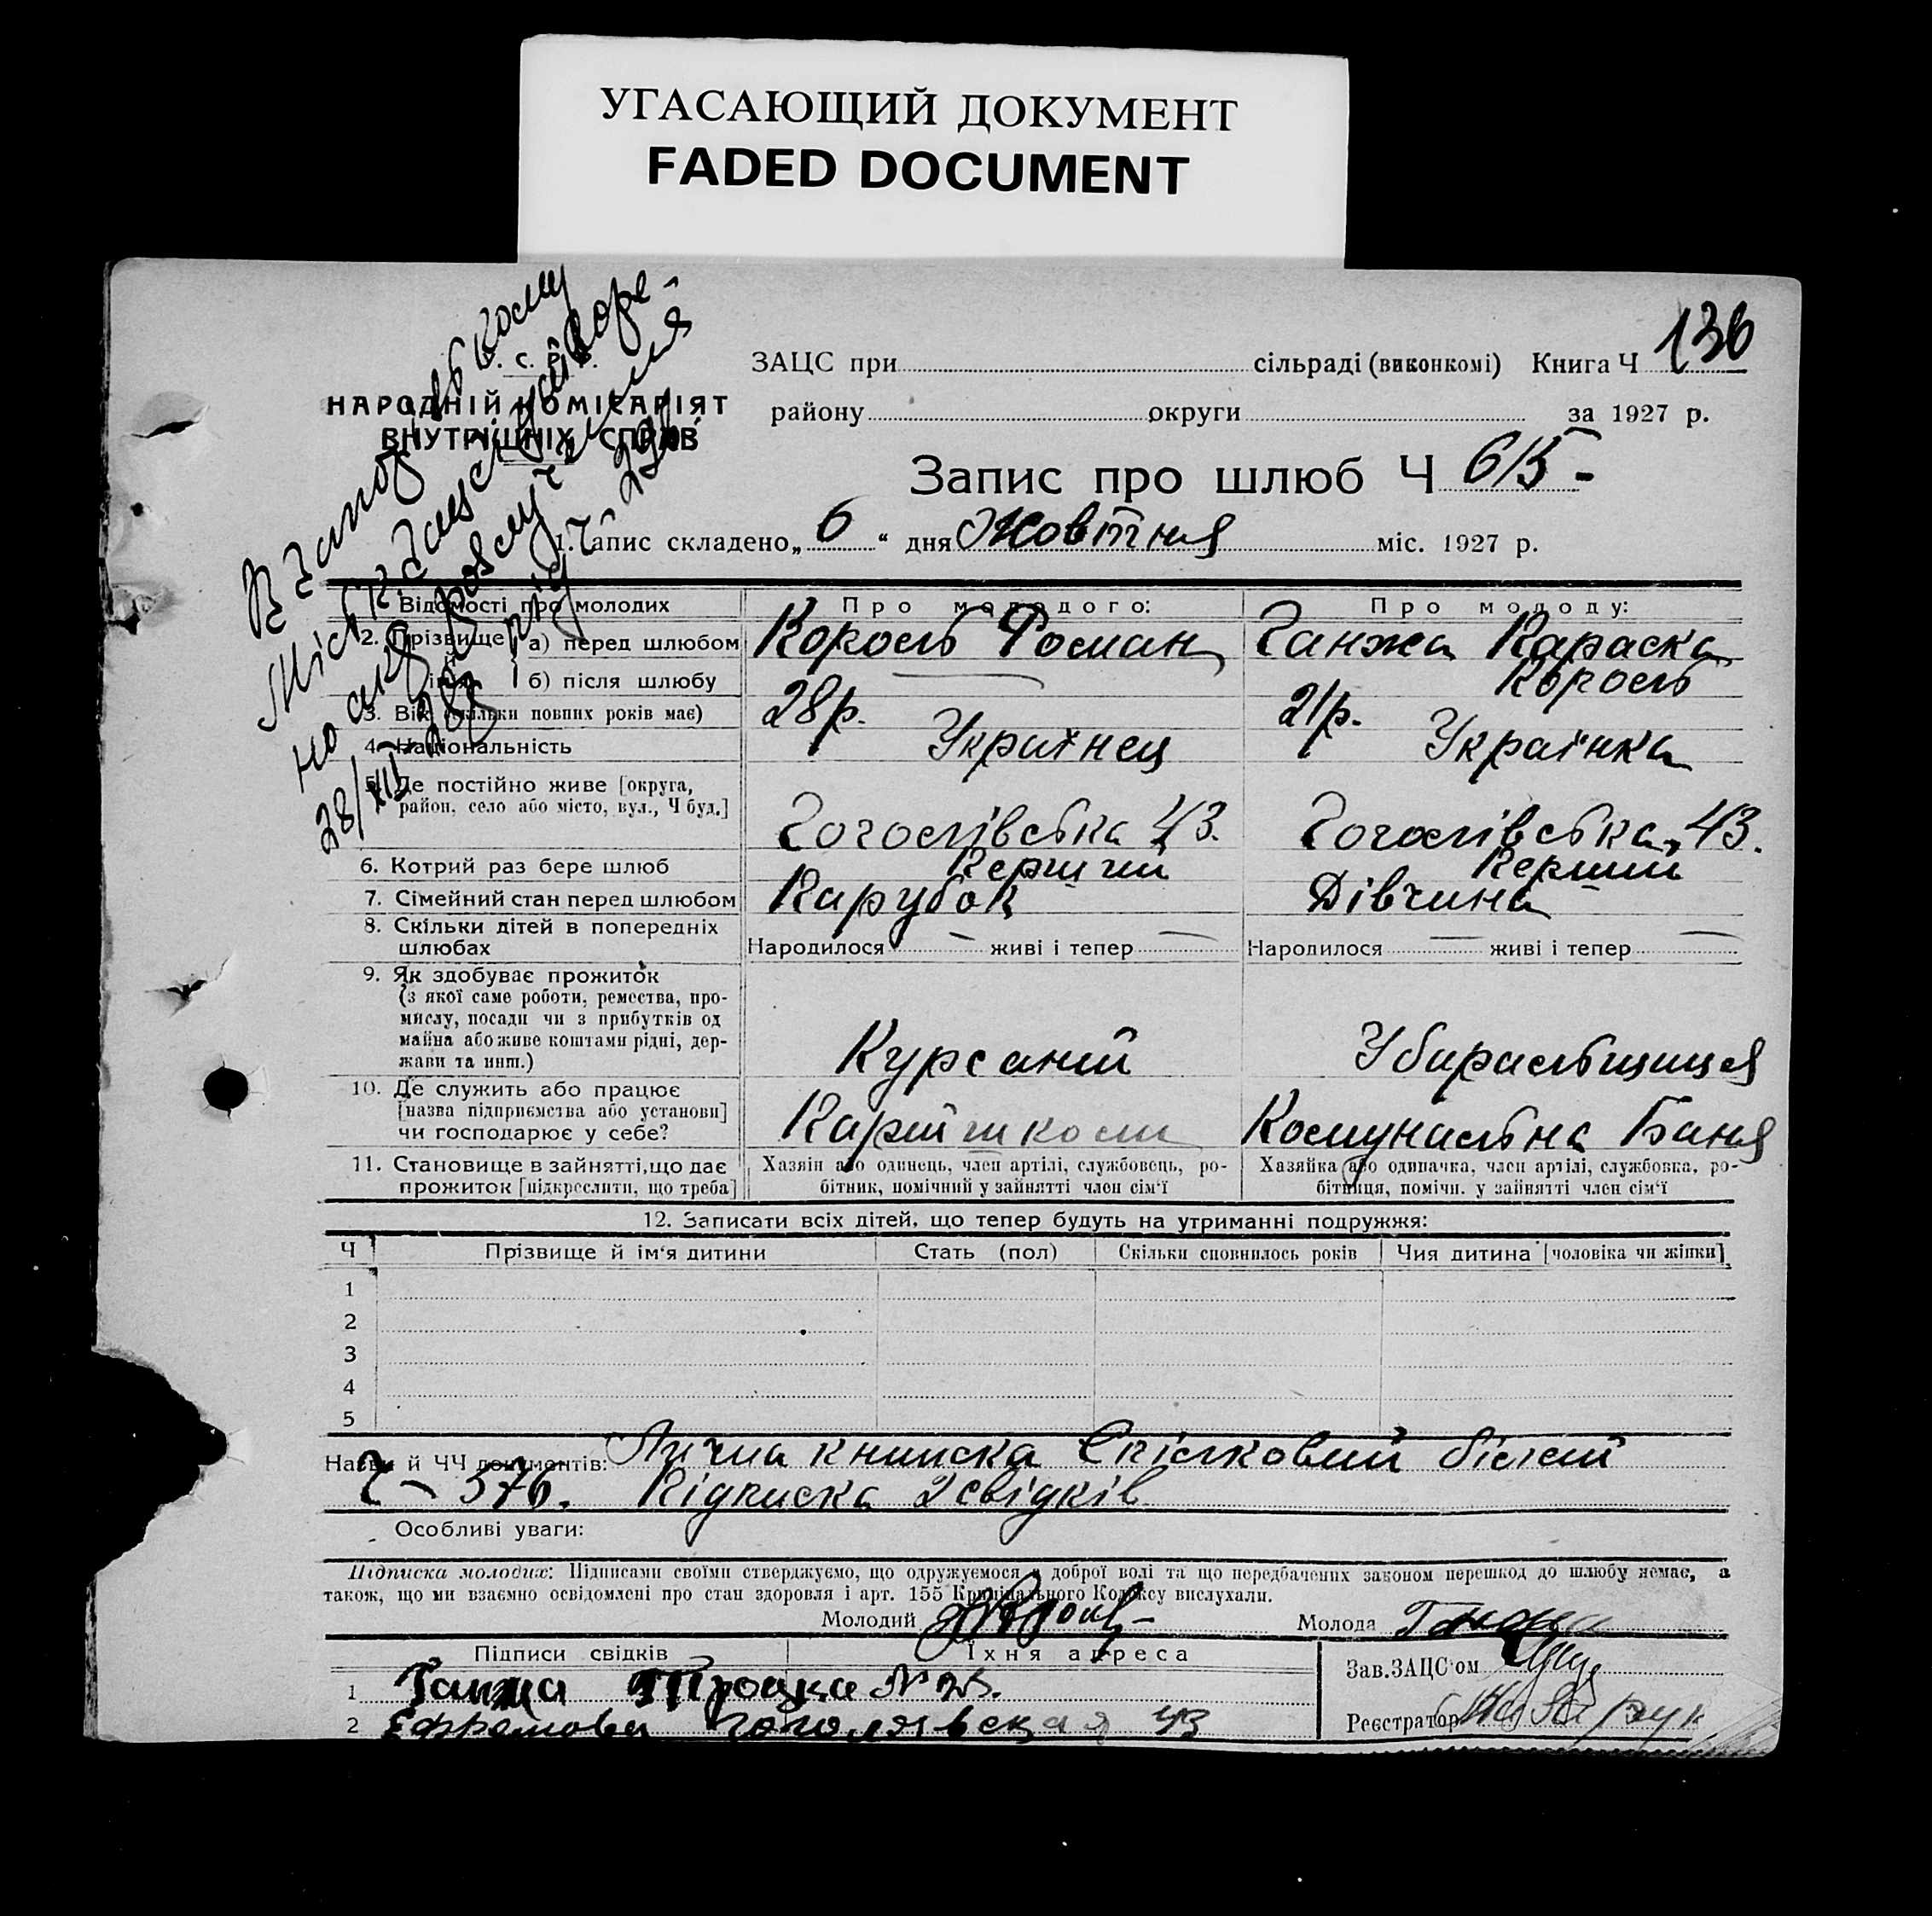 УГАСАЮЩИЙ ДОКУМЕНТ
FADED DOCUMENT
НАРОДНІЙ КОМІСАРІЯТ
ВНУТРІШНІХ СПРАВ
ЗАЦС при сільраді (виконкомі) Книга Ч 136
району округи за 1927 р.
Запис про шлюб Ч 615-
1. Запис складено „ 6 “ дня Жовтня міс. 1927 р.
Відомості про молодих Про молодого: Про молоду:
2. Прізвище й ім'я а) перед шлюбом Король Роман Ганжа Параска
б) після шлюбу Король
3. Вік (скільки повних років має) 28 р. 21 р.
4. Національність Українец Українка
5. Де постійно живе [округа,
район, село або місто, вул., Ч буд.] Гоголівська 43. Гоголівська 43.
6. Котрий раз бере шлюб Перший Перший
7. Сімейний стан перед шлюбом Парубок Дівчина
8. Скільки дітей в попередніх
шлюбах Народилося — живі і тепер — Народилося — живі і тепер —
9. Як здобуває прожиток
(з якої саме роботи, ремества, про-
мислу, посади чи з прибутків од
майна або живе коштами рідні, дер-
жави та инш.) Курсант Убиральщиця
10. Де служить або працює
[назва підприємства або установи]
чи господарює у себе? Партшколи Комунальна Баня
11. Становище в зайнятті, що дає
прожиток [підкреслити, що треба]
Хазяін або одинець, член артілі, службовець, ро-
бітник, помічний у зайнятті член сім'ї
Хазяйка або одиначка, член артілі, службовка, ро-
бітниця, помічн. у зайнятті член сім'ї
12. Записати всіх дітей, що тепер будуть на утриманні подружжя:
Ч Прізвище й ім'я дитини Стать (пол) Скільки сповнилось років Чия дитина [чоловіка чи жінки]
1
2
3
4
5
Назви й ЧЧ документів: Лична книжка Спілковий білет
Ч - 576. Підписка 2 свідків
Особливі уваги:
Підписка молодих: Підписами своїми стверджуємо, що одружуємося з доброї волі та що передбачених законом перешкод до шлюбу немає, а
також, що ми взаємно освідомлені про стан здоровля і арт. 155 Кримінального Кодексу вислухали.
Молодий Молода Ганжа
Підписи свідків Їхня адреса
Зав. ЗАЦС'ом
1 Ганжа Троцка № 25.
2 Ефремова Гоголявская 43
Реєстратор